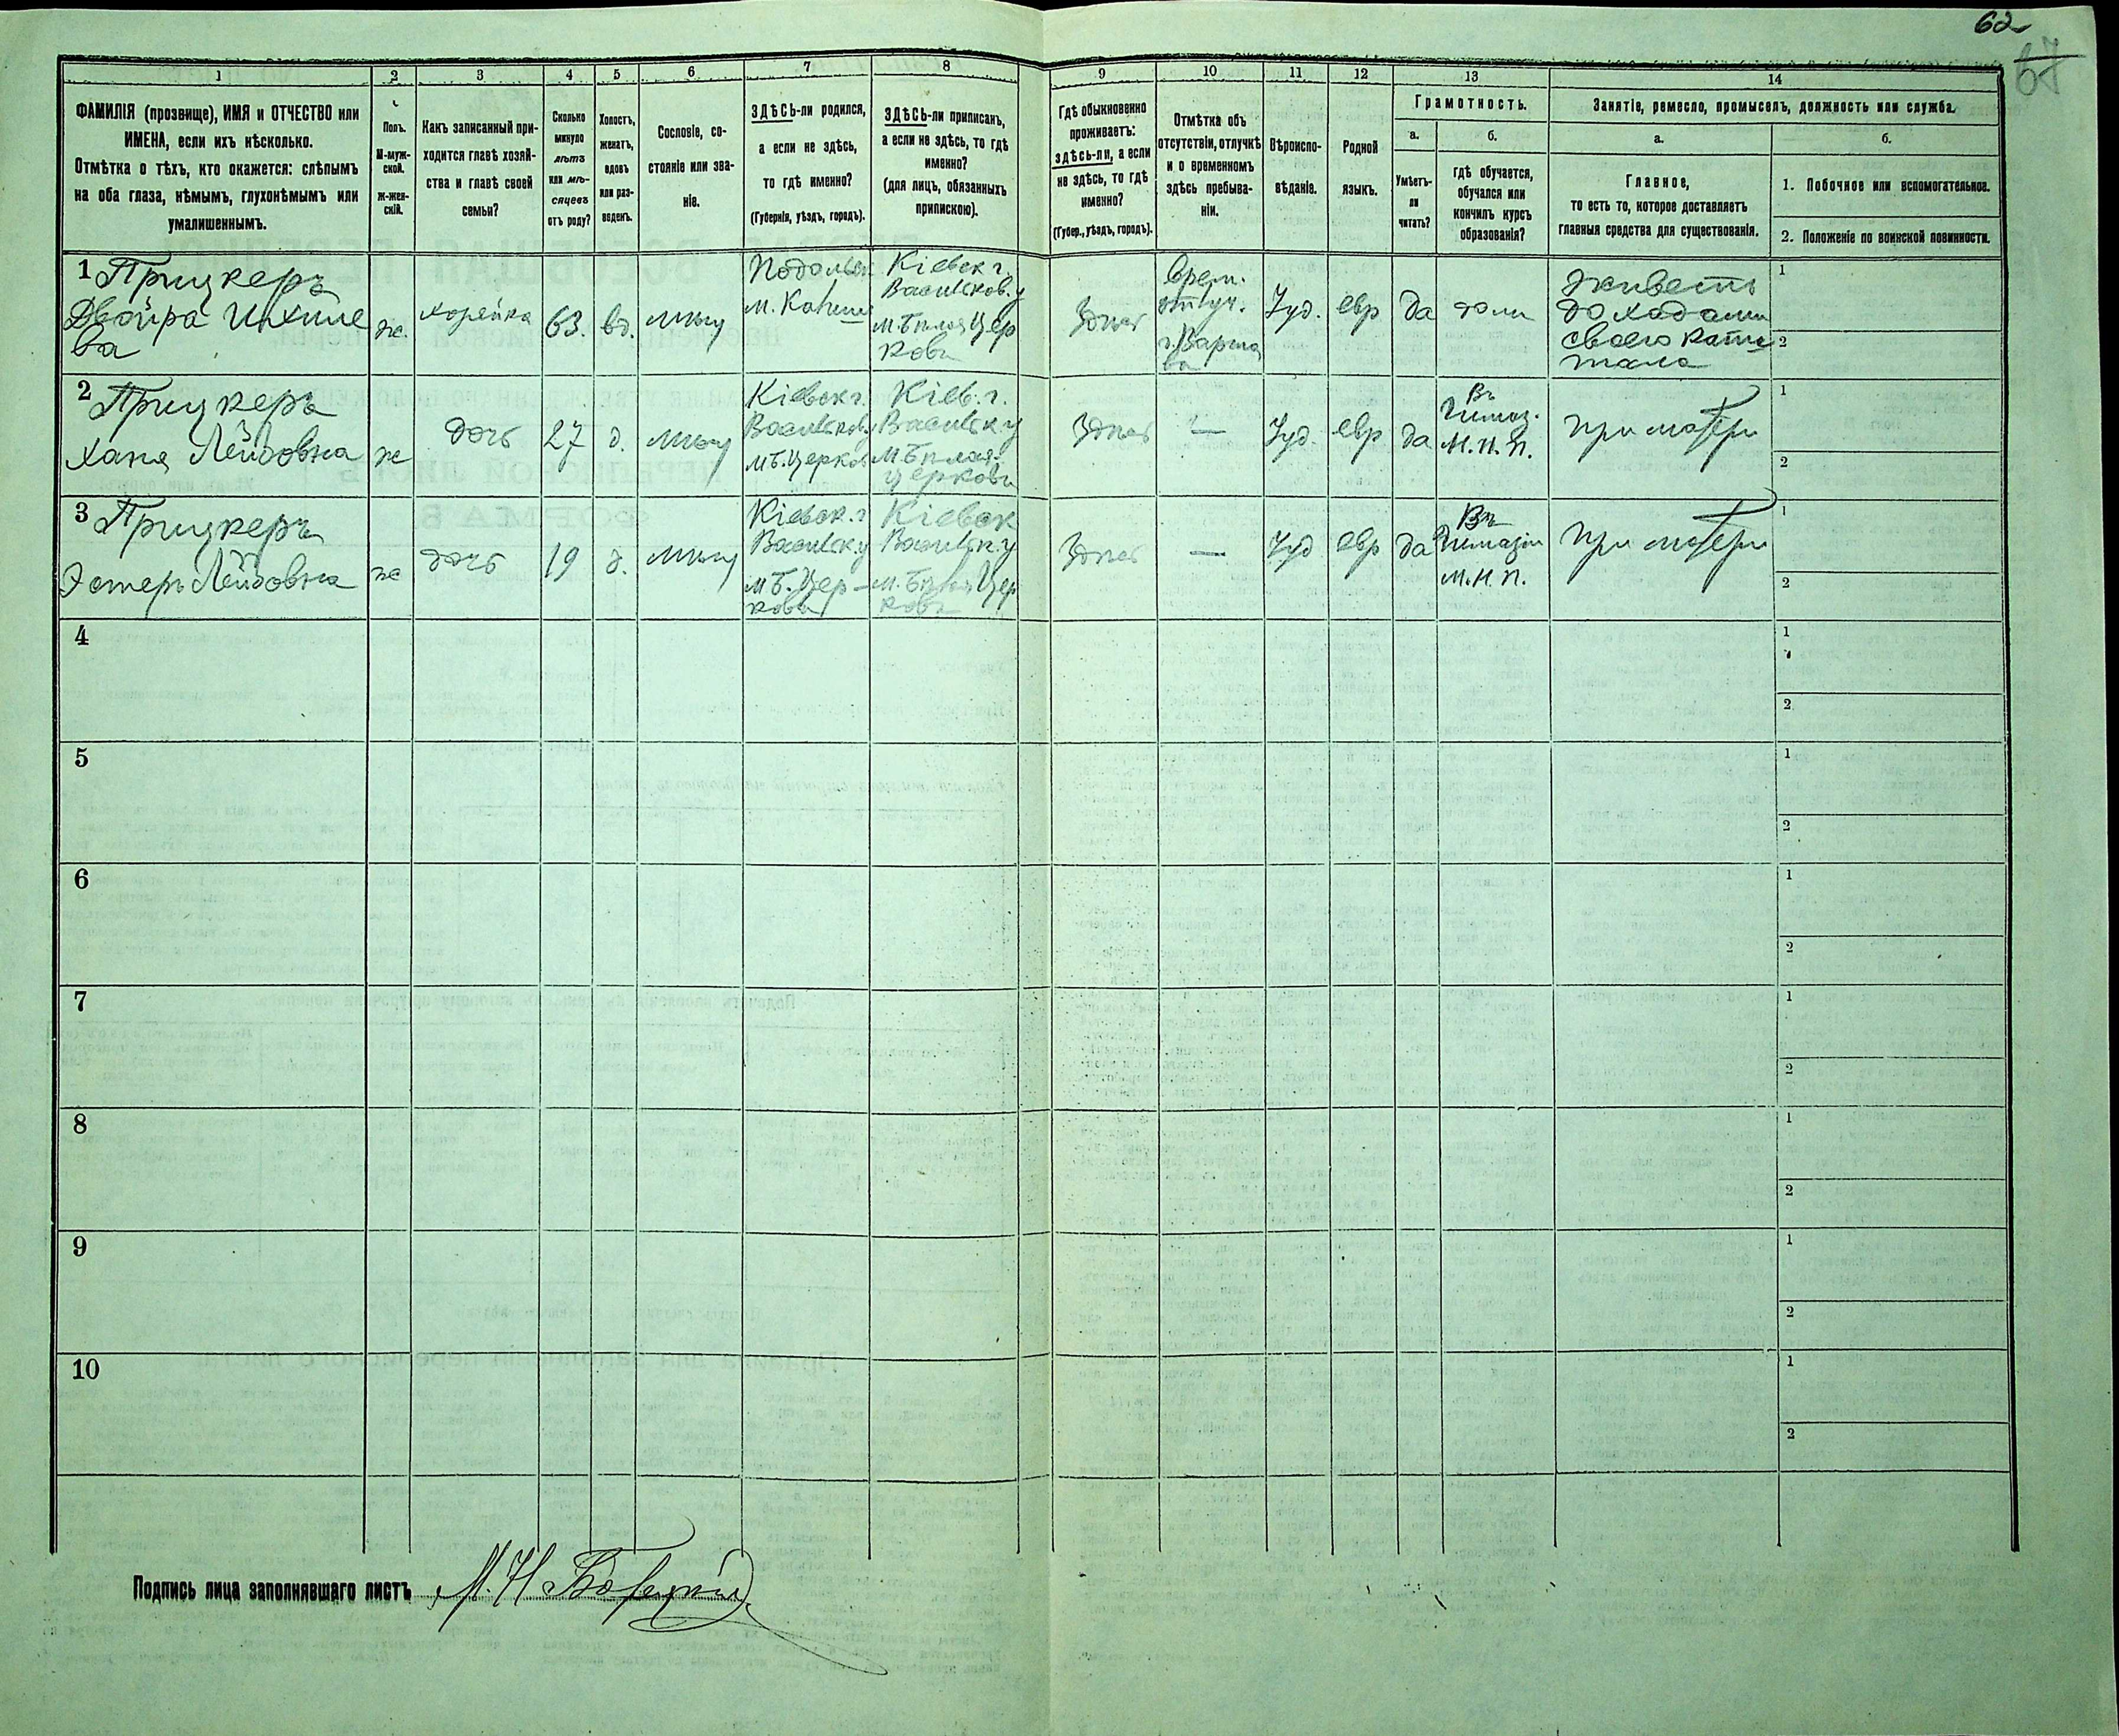 62
67
1 2 3 4 5 6 7 8 9 10 11 12 13 14
ФАМИЛІЯ (прозвище), ИМЯ и ОТЧЕСТВО или
ИМЕНА, если ихъ нѣсколько.
Отмѣтка о тѣхъ, кто окажется: слѣпымъ
на оба глаза, нѣмымъ, глухонѣмымъ или
умалишеннымъ.
Полъ.
М-муж-
ской.
ж-жен-
скій.
Какъ записанный при-
ходится главѣ хозяй-
ства и главѣ своей
семьи?
Сколько
минуло
лѣтъ
или мѣ-
сяцевъ
отъ роду?
Холостъ,
женатъ,
вдовъ
или раз-
веденъ.
Сословіе, со-
стояніе или зва-
ніе.
ЗДѢСЬ-ли родился,
а если не здѣсь,
то гдѣ именно?
(Губернія, уѣздъ, городъ).
ЗДѢСЬ-ли приписанъ,
а если не здѣсь, то гдѣ
именно?
(для лицъ, обязанныхъ
припискою).
Гдѣ обыкновенно
проживаетъ:
здѣсь-ли, а если
не здѣсь, то гдѣ
именно?
(Губер., уѣздъ, городъ).
Отмѣтка объ
отсутствіи, отлучкѣ
и о временномъ
здѣсь пребыва-
ніи.
Вѣроиспо-
вѣданіе.
Родной
языкъ.
Грамотность.
а.
Умѣетъ-
ли
читать?
б.
гдѣ обучается,
обучался или
кончилъ курсъ
образованія?
Занятіе, ремесло, промыселъ, должность или служба.
а.
Главное,
то есть то, которое доставляетъ
главныя средства для существованія.
б.
1. Побочное или вспомогательное.
2. Положеніе по воинской повинности.
1 Прицкеръ
Двойра
ва
ж.
хозяйка
63.
вд.
мѣщ
Подольск
м.
Кіевск г.
Васильков. у
м. Бѣлая Цер
ковь
Здѣсь
Врем.
отлуч.
г. Варша
ва
Іуд.
евр
да
дома
живетъ
доходами
своего капи
тала
1
2
2 Прицкеръ
Хана Лейбовна
ж
дочь
27
д.
мѣщ
Кіевск г.
Васильков у
м Б. Церковь
Кіев. г.
Васильк у
м Бѣлая
Церковь
Здѣсь
—
Іуд.
евр
да
Въ
Гимназ.
М. Н. П.
При матери
1
2
3 Прицкеръ
Эстеръ Лейбовна
ж
дочь
19
д.
мѣщ
Кіевск. г
Васильк. у
м Б. Цер-
ковь
Кіевск
Васильк. у
м. Бѣлая Цер
ковь
Здѣсь
—
Іуд
евр
да
Въ
Гимназіи
М. Н. П.
При матери
1
2
4
1
2
5
1
2
6
1
2
7
1
2
8
1
2
9
1
2
10
1
2
Подпись лица заполнявшаго листъ